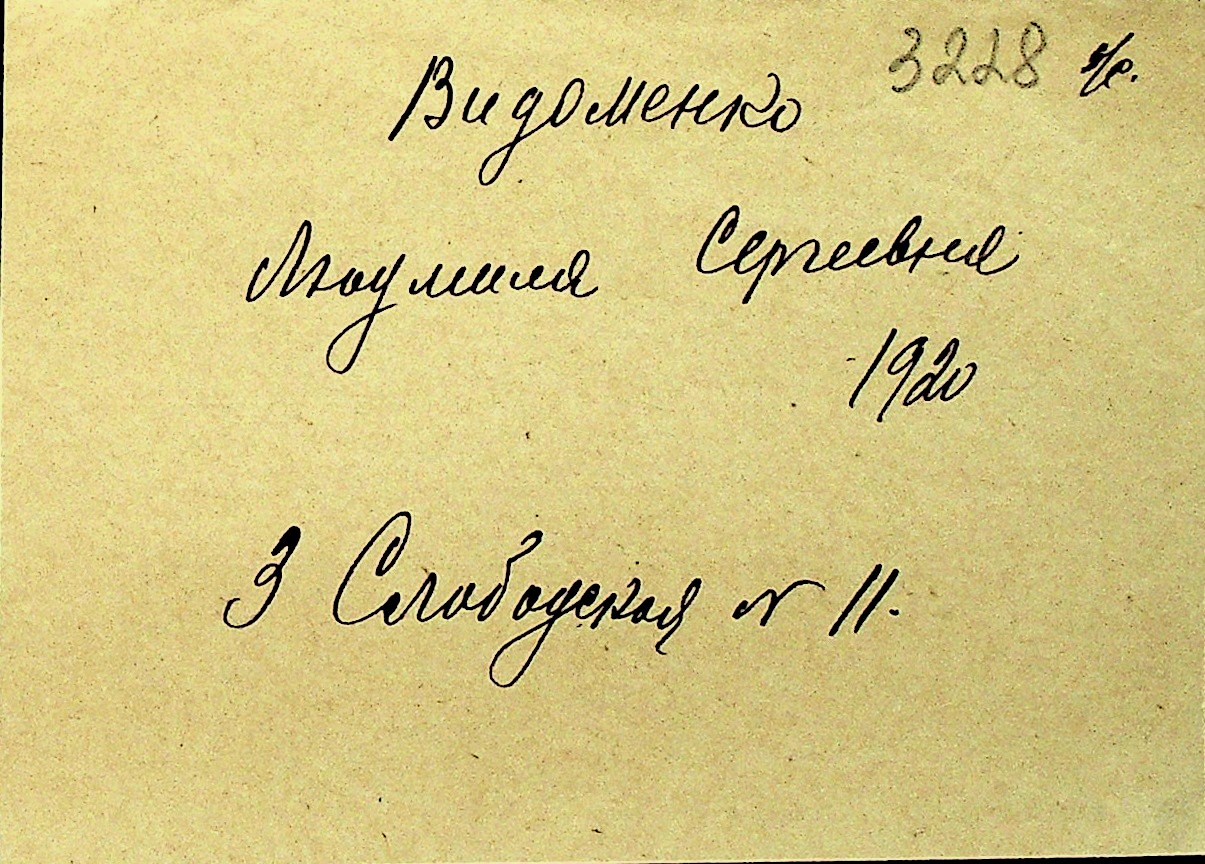 3228
Видоменко
Людмила Сергеевна
1920
3 Слободская № 11.